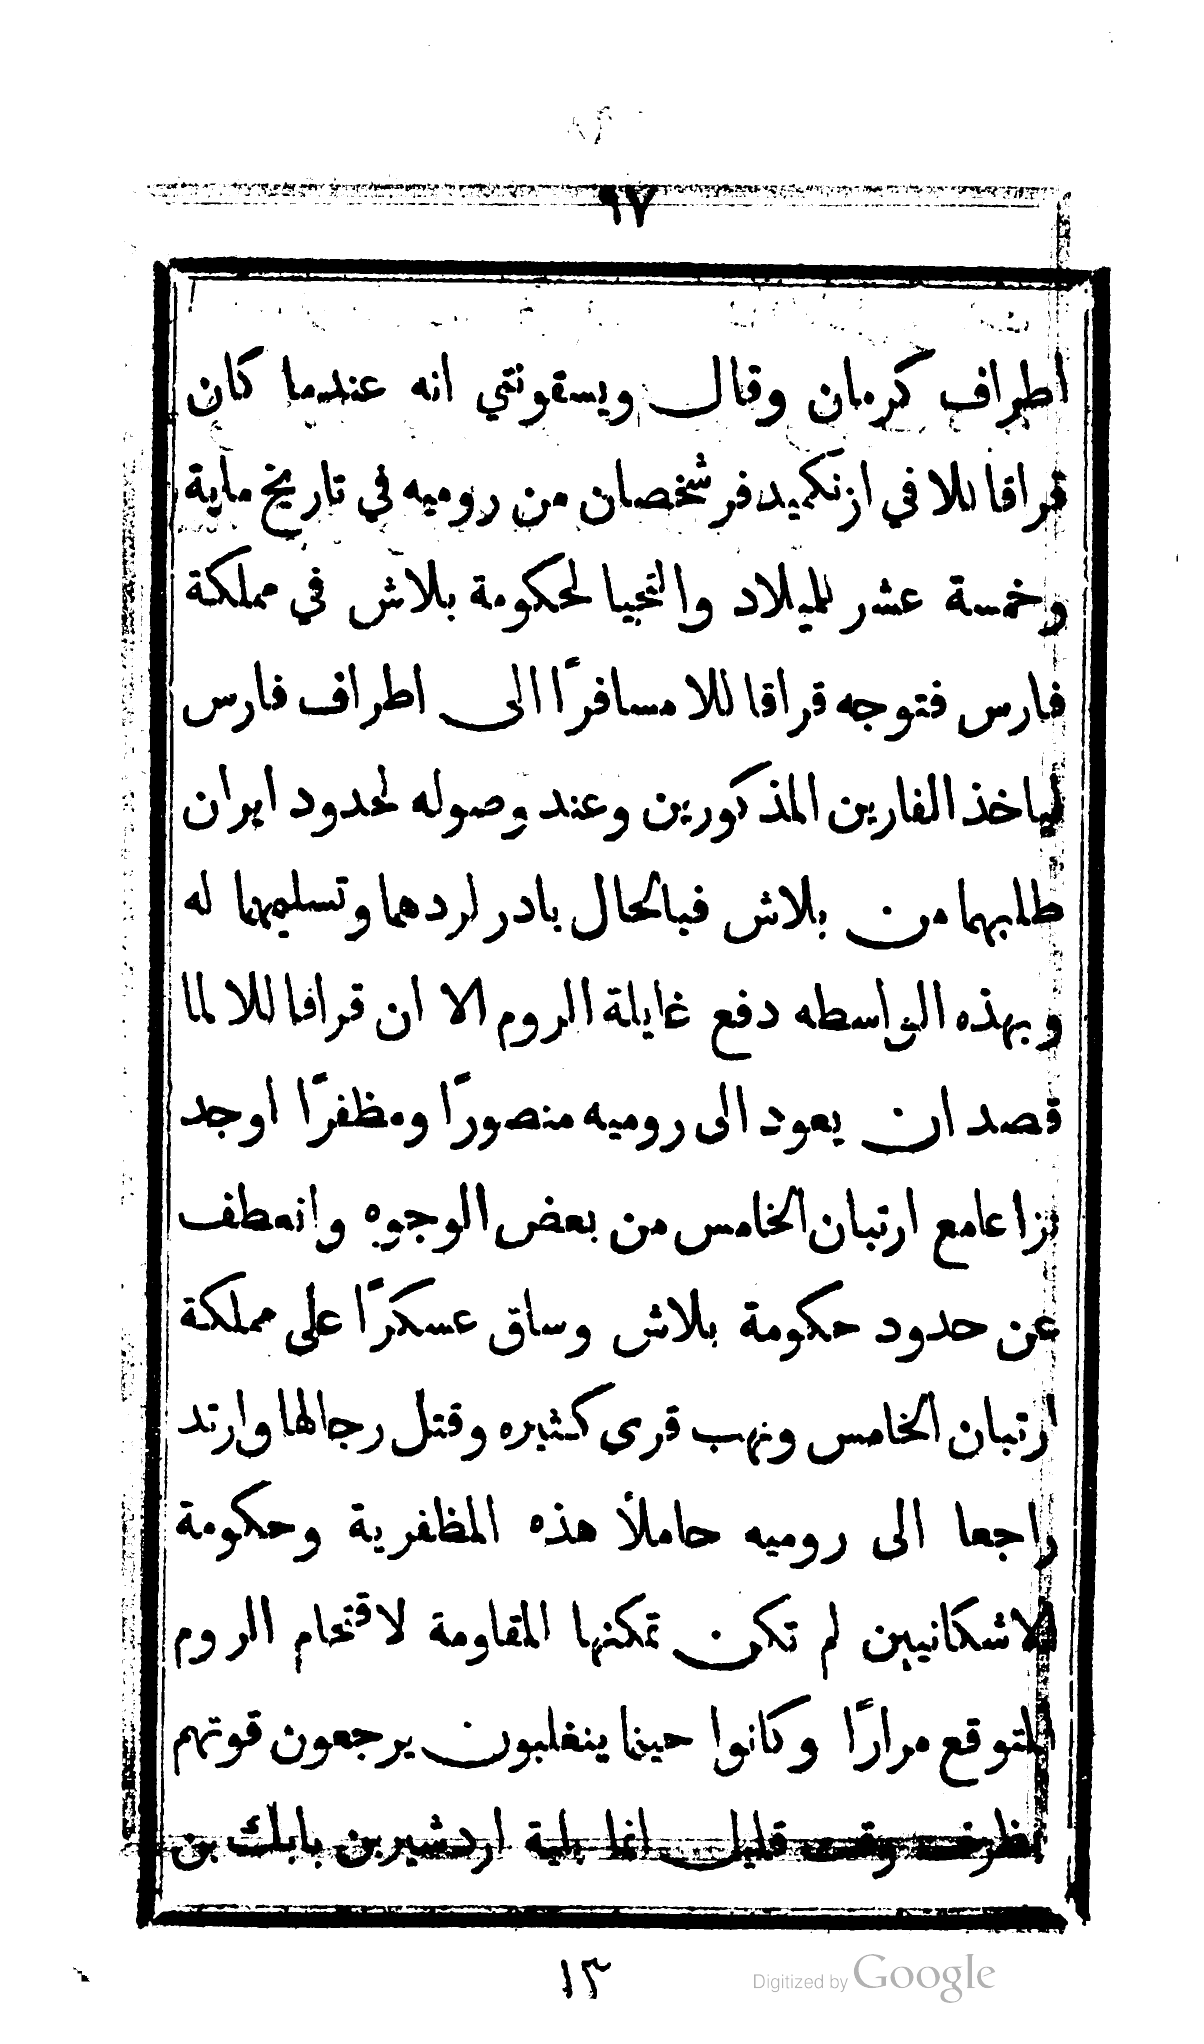 ٩٧
اطراف كرمان وقال ويسقونتي انه عندما كان
قراقاللا في ازنكميد فر شخصان من روميه في تاريخ ماية
وخمسة عشر للميلاد والتجيا لحكومة بلاش في مملكة
فارس فتوجه قراقاللا مسافرًا الى اطراف فارس
لياخذ الفارين المذكورين وعند وصوله لحدود ايران
طلبهما من بلاش فبالحال بادر لردهما وتسليمهما له
وبهذه الواسطه دفع غايلة الروم الا ان قراقاللا لما
قصد ان يعود الى روميه منصورًا ومظفرًا اوجد
نزاعا مع ارتبان الخامس من بعض الوجوه وانعطف
عن حدود حكومة بلاش وساق عسكرًا على مملكة
ارتبان الخامس ونهب قرى كثيره وقتل رجالها وارتد
راجعا الى روميه حاملاً هذه المظفرية وحكومة
الاشكانيين لم تكن تمكنها المقاومة لاقتحام الروم
المتوقع مرارًا وكانوا حينما ينغلبون يرجعون قوتهم
بظرف وقت قليل انما بلية اردشير بن بابك بن
١٣
Digitized by Google